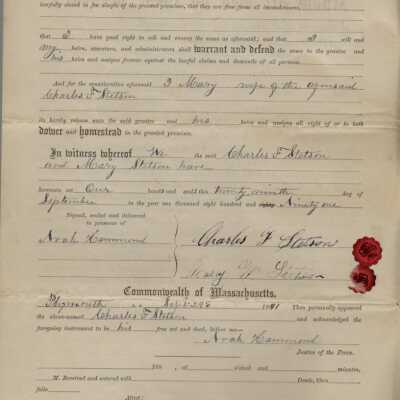 lawfully seized in fee simple of the granted premises, that they are free from all incumbrances,
that I have good right to sell and convey the same as aforesaid; and that I will and
my heirs, executors, and administrators shall warrant and defend the same to the grantee and
his heirs and assigns forever against the lawful claims and demands of all persons.
And for the consideration aforesaid I Mary wife of the aforesaid
Charles F Stetson
do hereby release unto the said grantee and his heirs and assigns all right of or to both
dower and homestead in the granted premises.
In witness whereof We the said Charles F Stetson
and Mary Stetson have
hereunto set Our hands and seals this twenty ninth day of
September in the year one thousand eight hundred and eighty Ninety one
Signed, sealed and delivered
in presence of
Noah Hammond
Charles F Stetson
Mary W Stetson
Commonwealth of Massachusetts.
Plymouth ss. Sept 29th 1891 Then personally appeared
the above-named Charles F Stetson and acknowledged the
foregoing instrument to be his free act and deed, before me—
Noah Hammond
Justice of the Peace.
18 at o'clock and minutes,
M. Received and entered with Deeds, libro
folio
Attest: